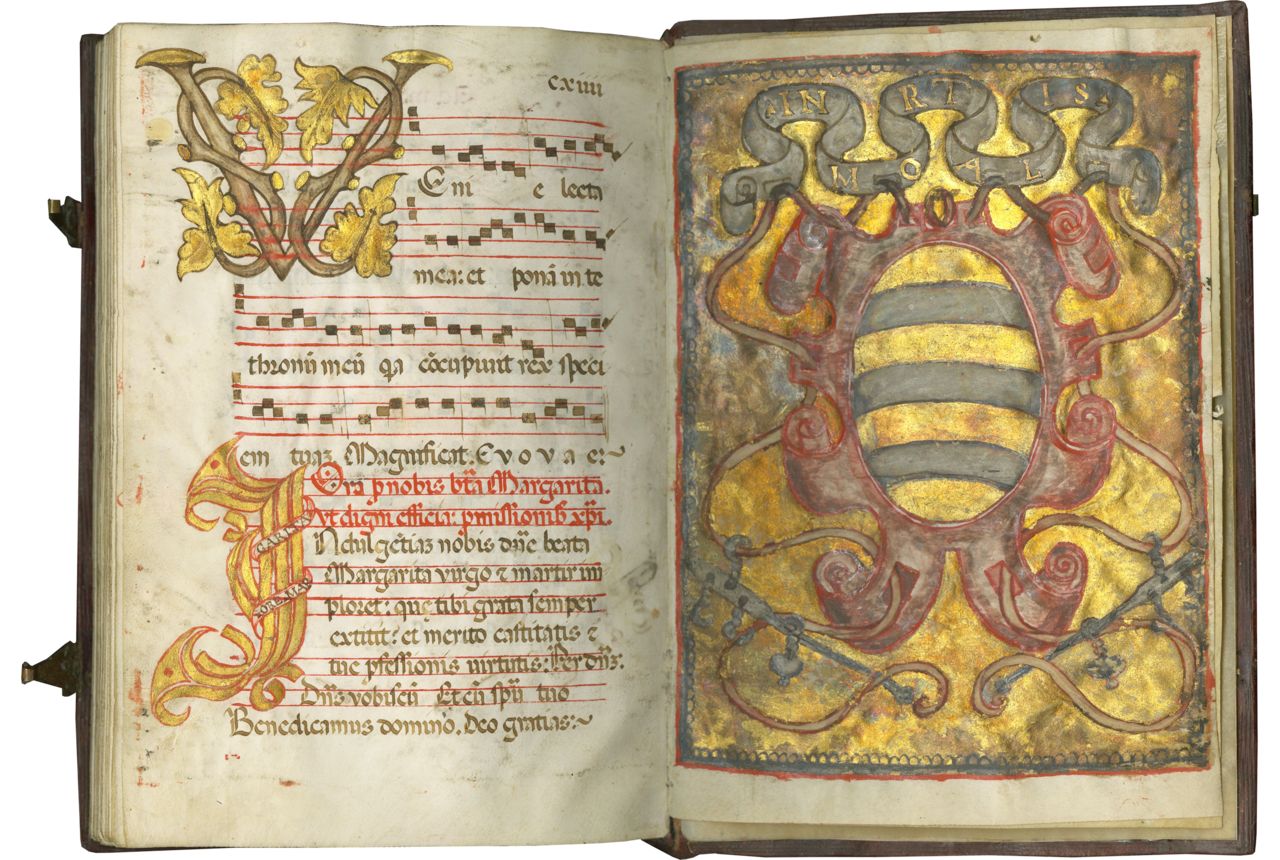 cxiiii
Eni e lecta
mea: et ponā in te
thronū meū q̄a cōcupiuit rex speci
em tuaꝫ Magnificat. E v o v a e:~
Ora p nobis btā Margarita.
Vt digni efficia: pmissionib xp̄i.
Ndulgētiaꝫ nobis dn̄e beata
Margarita virgo ⁊ martir im
ploret: quę tibi grata semper
extitit: et merito castitatis ⁊
tue pfessionis virtutis: Per dn̄ꝫ.
Dn̄s vobiscū Et cū spū tuo
Benedicamus domino. Deo gratias:~
IN R T IS
M O A L